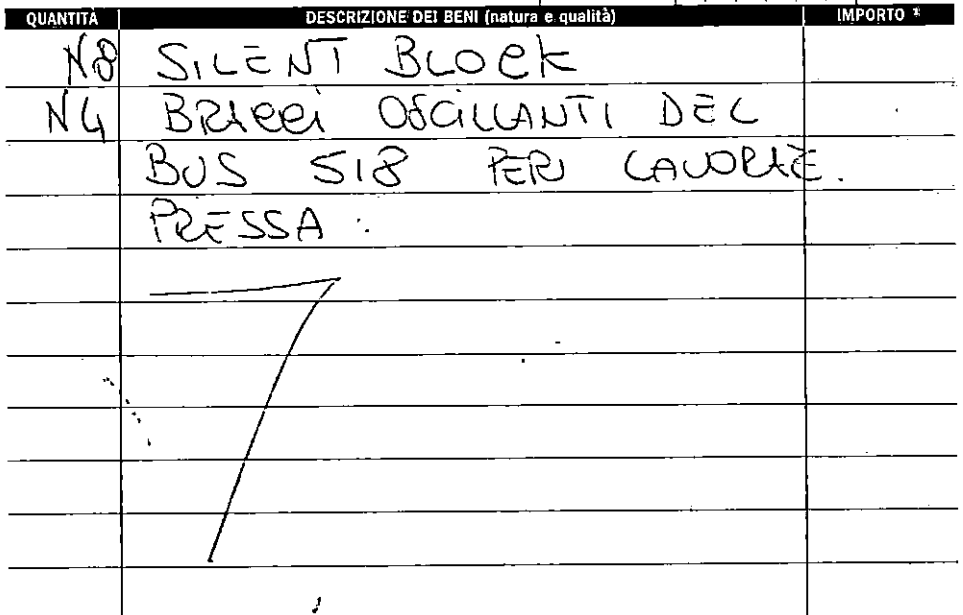 QUANTITÀ DESCRIZIONE DEI BENI (natura e qualità) IMPORTO *
N8 SILENT BLOCK
N4 BRACCI OSCILLANTI DEL
BUS 518 PER LAVORAZ.
PRESSA.